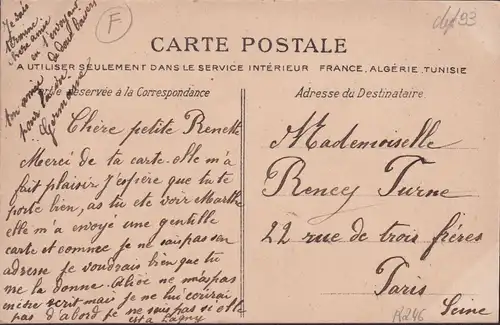 Je suis
en l'envoyant
ton amie
pour la vie
Germaine
F
dep 93
CARTE POSTALE
A UTILISER SEULEMENT DANS LE SERVICE INTÉRIEUR FRANCE, ALGÉRIE, TUNISIE
Réservée à la Correspondance
Adresse du Destinataire
Chère petite Renette
Merci de ta carte. elle m'a
fait plaisir J'espère que tu te
porte bien, as tu été voir Marthe
elle m'a envoyé une gentille
carte et comme je ne sais pas son
adresse je voudrais bien que tu
me la donne. Alice ne m'a pas
encore ecrit mais je ne lui écrirai
pas d'abord je ne sais pas si elle
est a Lagny
Mademoiselle
Turne
22 rue de trois frères
Paris
Seine
R246